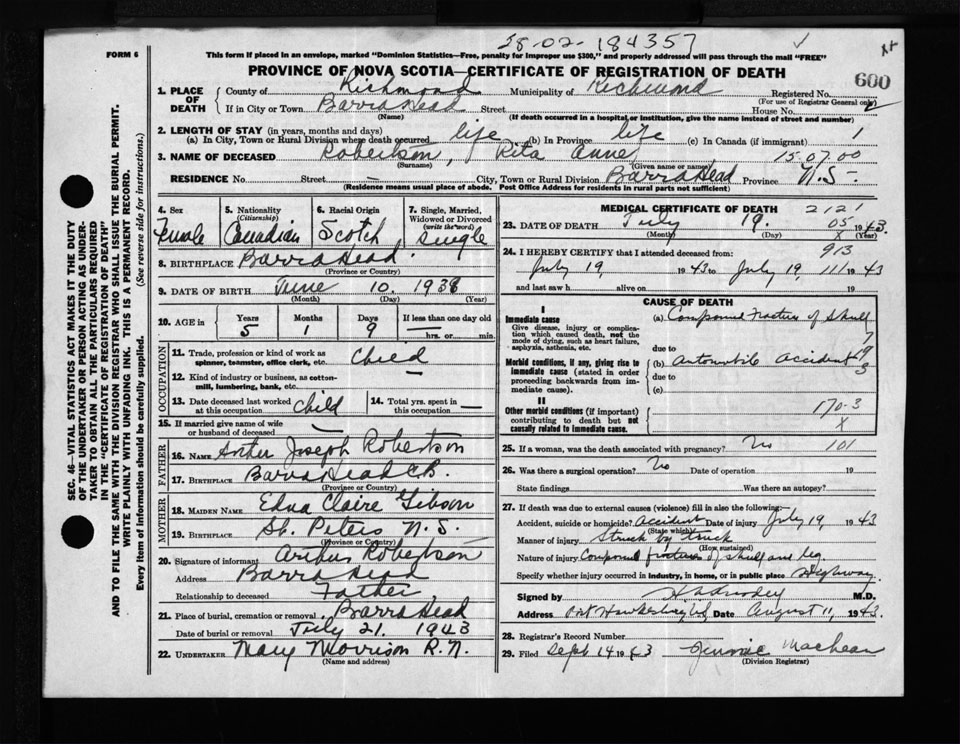 FORM 6
This form if placed in an envelope, marked "Dominion Statistics—Free, penalty for improper use $300," and properly addressed will pass through the mail "FREE"
58-02-184357
PROVINCE OF NOVA SCOTIA—CERTIFICATE OF REGISTRATION OF DEATH
600
1. PLACE OF DEATH
County of Richmond Municipality of Richmond Registered No.
(For use of Registrar General only)
If in City or Town Barra Head Street House No.
(Name) (If death occurred in a hospital or institution, give the name instead of street and number)
2. LENGTH OF STAY (in years, months and days)
(a) In City, Town or Rural Division where death occurred life (b) In Province life (c) In Canada (if immigrant)
3. NAME OF DECEASED Robertson, Rita Anne
(Surname) (Given name or names)
15.07.00
RESIDENCE No. Street — City, Town or Rural Division Barra Head Province N.S.
(Residence means usual place of abode. Post Office Address for residents in rural parts not sufficient)
4. Sex Female
5. Nationality (Citizenship) Canadian
6. Racial Origin Scotch
7. Single, Married, Widowed or Divorced (write the word) single
8. BIRTHPLACE Barra Head
(Province or Country)
9. DATE OF BIRTH June 10. 1938
(Month) (Day) (Year)
10. AGE in Years Months Days If less than one day old
5 1 9 hrs. or min.
OCCUPATION
11. Trade, profession or kind of work as spinner, teamster, office clerk, etc. Child
12. Kind of industry or business, as cotton-mill, lumbering, bank, etc. —
13. Date deceased last worked at this occupation child
14. Total yrs. spent in this occupation —
15. If married give name of wife or husband of deceased —
FATHER
16. NAME Arthur Joseph Robertson
17. BIRTHPLACE Barra Head C.B.
(Province or Country)
MOTHER
18. MAIDEN NAME Edna Claire Gibson
19. BIRTHPLACE St. Peters N.S.
(Province or Country)
20. Signature of informant Arthur Robertson
Address Barra Head
Relationship to deceased Father
21. Place of burial, cremation or removal Barra Head
Date of burial or removal July 21. 1943
22. UNDERTAKER Mary Morrison R.N.
(Name and address)
MEDICAL CERTIFICATE OF DEATH
2121
23. DATE OF DEATH July 19. 05 1943
(Month) (Day) (Year)
24. I HEREBY CERTIFY that I attended deceased from: 913
July 19, 1943 to July 19, 111 1943
and last saw h alive on 19
CAUSE OF DEATH
I
Immediate cause
Give disease, injury or complication which caused death, not the mode of dying, such as heart failure, asphyxia, asthenia, etc.
(a) Compound Fracture of Skull
due to
Morbid conditions, if any, giving rise to immediate cause (stated in order proceeding backwards from immediate cause).
(b) Automobile accident
due to
(c)
II
Other morbid conditions (if important) contributing to death but not causally related to immediate cause.
170-3
X
25. If a woman, was the death associated with pregnancy? No 101
26. Was there a surgical operation? No Date of operation 19
State findings Was there an autopsy?
27. If death due to external causes (violence) fill in also the following:—
Accident, suicide or homicide? Accident Date of injury July 19 1943
(State which)
Manner of injury Struck by truck
(How sustained)
Nature of injury Compound fractures of skull and leg
Specify whether injury occurred in industry, in home, or in public place Highway
Signed by M.D.
Address Port Hawkesbury Date August 11, 1943.
28. Registrar's Record Number
29. Filed Sept 14 1943 Jennie MacLean
(Division Registrar)
SEC. 46—VITAL STATISTICS ACT MAKES IT THE DUTY OF THE UNDERTAKER OR PERSON ACTING AS UNDERTAKER TO OBTAIN ALL THE PARTICULARS REQUIRED IN THE "CERTIFICATE OF REGISTRATION OF DEATH" AND TO FILE THE SAME WITH THE DIVISION REGISTRAR WHO SHALL ISSUE THE BURIAL PERMIT.
WRITE PLAINLY WITH UNFADING INK. THIS IS A PERMANENT RECORD.
Every item of information should be carefully supplied. (See reverse side for instructions.)